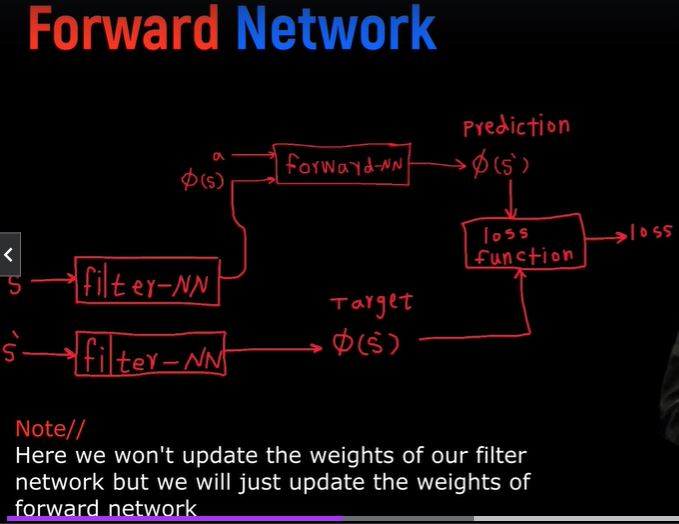 Forward Network
Prediction
a
forward-NN
ϕ(s')
ϕ(s)
loss
function
loss
s
filter-NN
Target
s'
filter-NN
ϕ(s')
Note//
Here we won't update the weights of our filter
network but we will just update the weights of
forward network